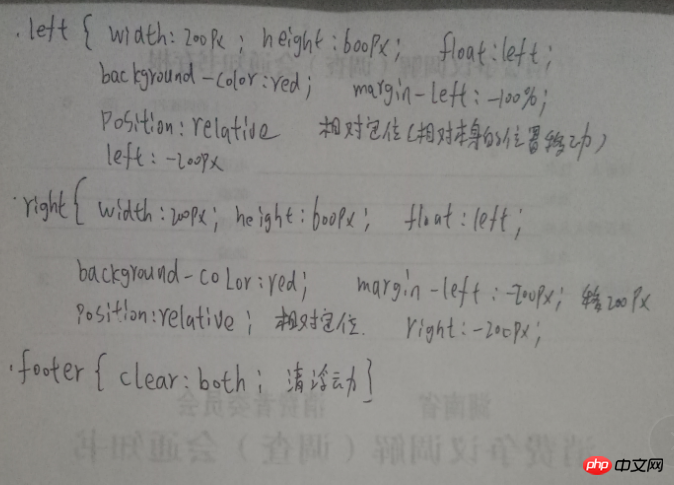 .left { width: 200px ; height : 600px ; float : left ;
background-color : red ; margin-left : -100% ;
Position : relative 相对定位(相对本身的位置移动)
left : -200px
.right{ width : 200px ; height : 600px ; float : left ;
background-color : red ; margin-left : -200px ; 移200px
Position : relative ; 相对定位. right : -200px ;
.footer { clear : both ; 清浮动}
湖南省 消费者委员会
消费争议调解(调查)会通知书
php 中文网